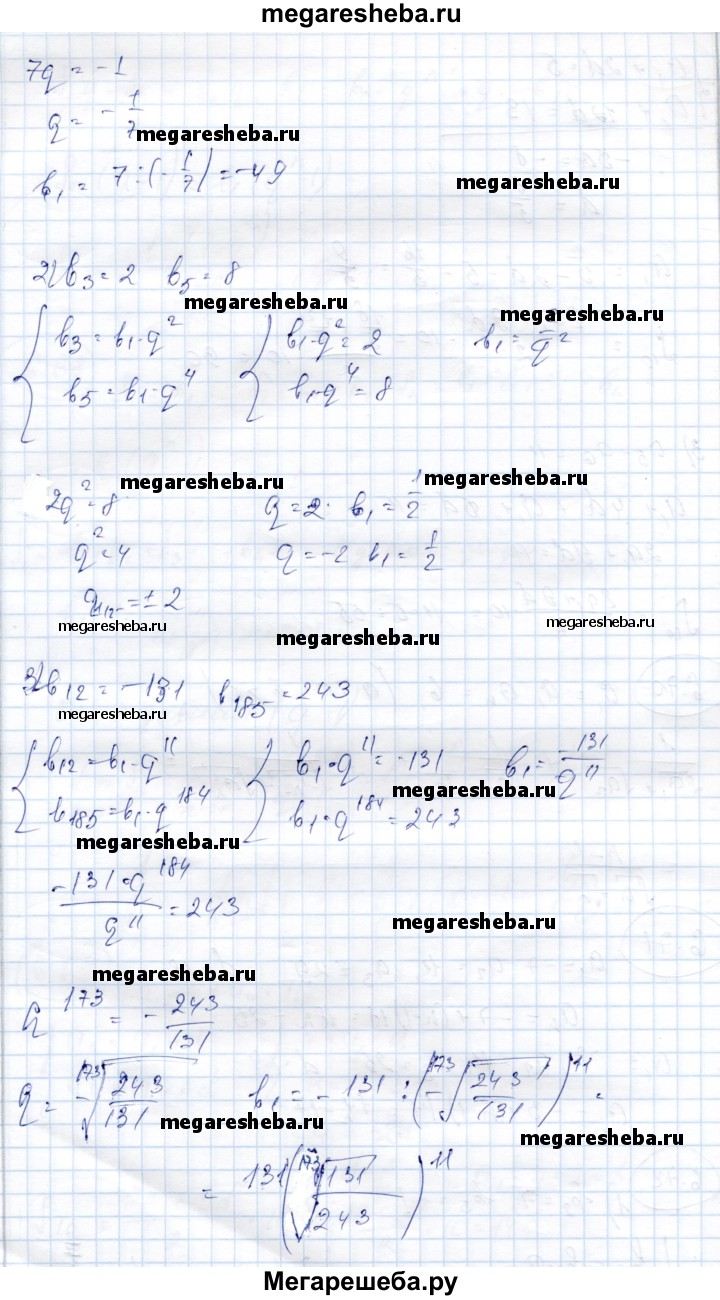 megaresheba.ru
7q = -1
q = -1/7
megaresheba.ru
b₁ = 7 : (-1/7) = -49
megaresheba.ru
2) b₃ = 2 b₅ = 8
megaresheba.ru
megaresheba.ru
{ b₃ = b₁·q² { b₁·q² = 2 b₁ = 2/q²
b₅ = b₁·q⁴ b₁·q⁴ = 8
megaresheba.ru
megaresheba.ru
2q² = 8 q = 2 b₁ = 1/2
q² = 4 q = -2 b₁ = 1/2
q₁,₂ = ±2
megaresheba.ru
megaresheba.ru
megaresheba.ru
3) b₁₂ = -131 b₁₈₅ = 243
megaresheba.ru
{ b₁₂ = b₁·q¹¹ { b₁·q¹¹ = -131 b₁ = -131/q¹¹
megaresheba.ru
b₁₈₅ = b₁·q¹⁸⁴ b₁·q¹⁸⁴ = 243
megaresheba.ru
-131·q¹⁸⁴/q¹¹ = 243
megaresheba.ru
megaresheba.ru
q¹⁷³ = -243/131
q = -¹⁷³√(243/131) b₁ = -131 : (-¹⁷³√(243/131))¹¹ =
megaresheba.ru
megaresheba.ru
= 131(¹⁷³√(131/243))¹¹
Мегарешеба.ру